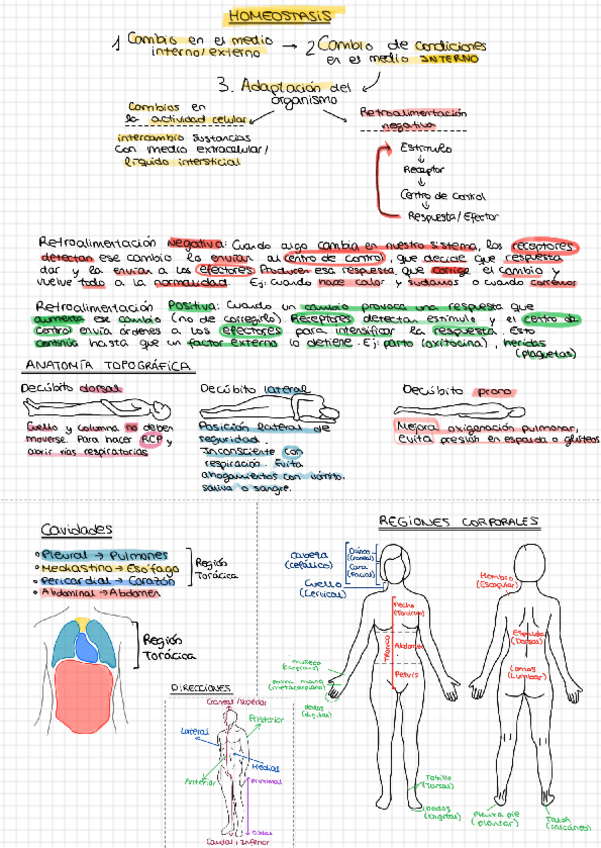 HOMEOSTASIS
1 Cambio en el medio
interno/externo
→ 2 Cambio de condiciones
en el medio INTERNO
3. Adaptación del
organismo
Cambios en
la actividad celular
intercambio sustancias
con medio extracelular/
líquido intersticial
Retroalimentación
negativa
Estímulo
Receptor
Centro de Control
Respuesta/Efector
Retroalimentación Negativa: Cuando algo cambia en nuestro sistema, los receptores
detectan ese cambio lo envían al centro de control, que decide que respuesta
dar y la envían a los efectores. Producen esa respuesta que corrige el cambio y
vuelve todo a la normalidad. Ej: cuando hace calor y sudamos o cuando corremos
Retroalimentación Positiva: Cuando un cambio provoca una respuesta que
aumenta ese cambio (no de corregirlo) Receptores detectan estímulo y el centro de
control envía órdenes a los efectores para intensificar la respuesta. Esto
continúa hasta que un factor externo lo detiene. Ej: parto (oxitocina), heridas
(plaquetas)
ANATOMÍA TOPOGRÁFICA
Decúbito dorsal
Cuello y columna no deben
moverse. Para hacer RCP y
abrir vías respiratorias
Decúbito lateral
Posición lateral de
seguridad.
Inconsciente con
respiración. Evita
ahogamientos con vómito,
saliva o sangre.
Decúbito prono
Mejora oxigenación pulmonar,
evita presión en espalda o glúteos
Cavidades
• Pleural → Pulmones
• Mediastino → Esófago
• Pericardial → Corazón
• Abdominal → Abdomen
Región
Torácica
Región
Torácica
DIRECCIONES
Craneal/Superior
Posterior
Lateral
Medial
Anterior
Proximal
Distal
Caudal/Inferior
REGIONES CORPORALES
Cabeza
(cefálico)
Cráneo
(Craneal)
Cara
(Facial)
Cuello
(Cervical)
Pecho
(Torácico)
Tronco
Abdomen
Pelvis
muñeca
(carpiano)
palma mano
(metacarpiano)
dedos
(digital)
Tobillo
(Tarsal)
dedos
(Digital)
Hombro
(Escapular)
Espalda
(Dorsal)
Lomos
(Lumbar)
Planta pie
(plantar)
Talón
(calcáneo)